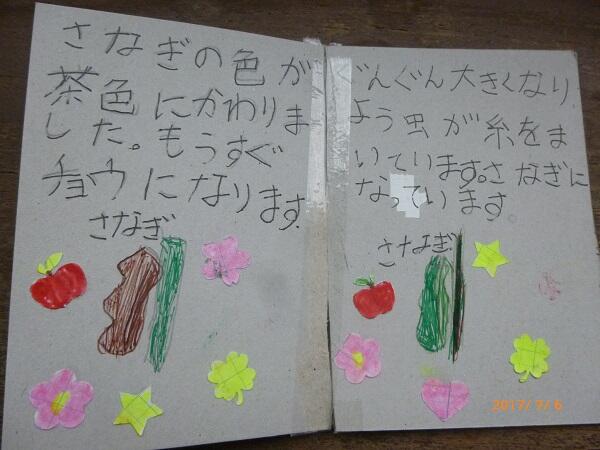 さなぎの色が
茶色にかわりま
した。もうすぐ
チョウになります
さなぎ
ぐんぐん大きくなり
よう虫が糸をま
いています。さなぎに
なっています。
さなぎ
2017/ 7/ 6